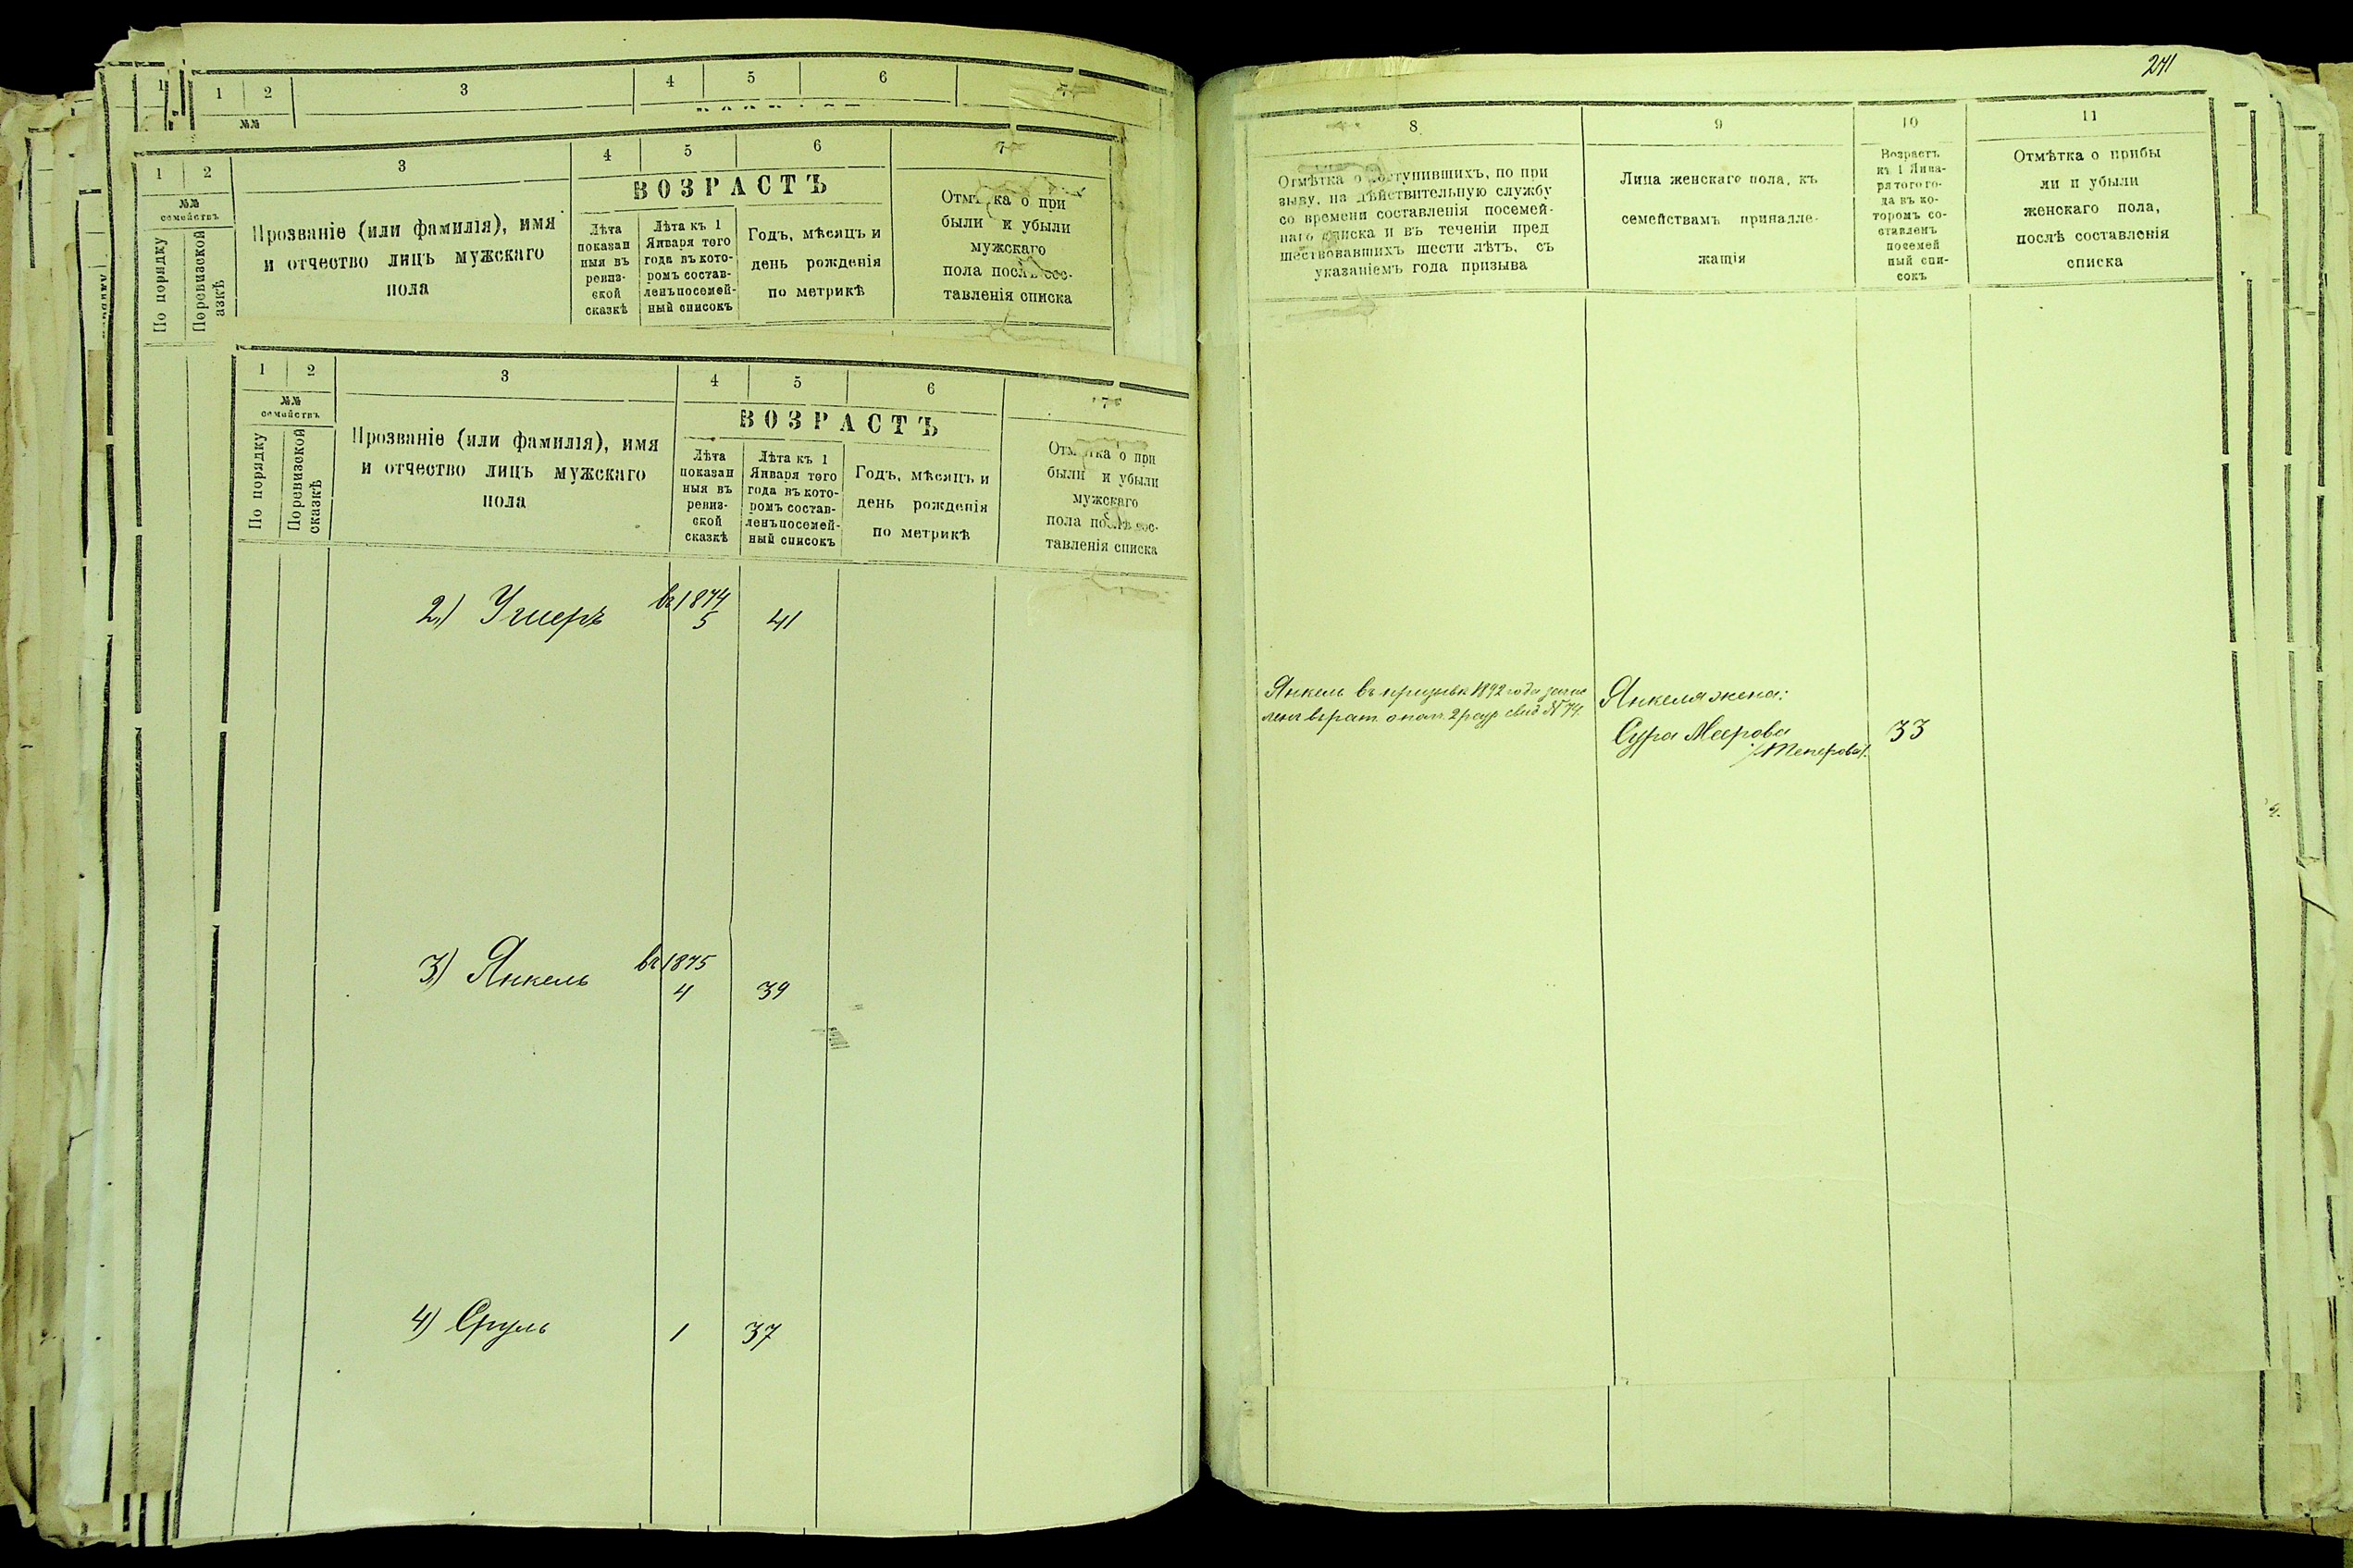 1 2 3 4 5 6
№№
1 2 3 4 5 6 7
№№ семействъ
По порядку
Поревизской
Прозваніе (или фамилія), имя
и отчество лицъ мужскаго
пола
ВОЗРАСТЪ
Лѣта
показан
ныя въ
ревиз-
ской
сказкѣ
Лѣта къ 1
Января того
года въ кото-
ромъ состав-
ленъ посемей-
ный списокъ
Годъ, мѣсяцъ и
день рожденія
по метрикѣ
Отмѣтка о при
были и убыли
мужскаго
пола послѣ сос-
тавленія списка
1 2 3 4 5 6 7
№№
семействъ
По порядку
Поревизской
сказкѣ
Прозваніе (или фамилія), имя
и отчество лицъ мужскаго
пола
ВОЗРАСТЪ
Лѣта
показан
ныя въ
ревиз-
ской
сказкѣ
Лѣта къ 1
Января того
года въ кото-
ромъ состав-
ленъ посемей-
ный списокъ
Годъ, мѣсяцъ и
день рожденія
по метрикѣ
Отмѣтка о при
были и убыли
мужскаго
пола послѣ сос-
тавленія списка
2) Ушеръ въ 1874
5 41
3) Янкель въ 1875
4 39
4) Сруль 1 37
241
8 9 10 11
Отмѣтка о поступившихъ, по при
зыву, на дѣйствительную службу
со времени составленія посемей-
наго списка и въ теченіи пред
шествовавшихъ шести лѣтъ, съ
указаніемъ года призыва
Лица женскаго пола, къ
семействамъ принадле-
жащія
Возрастъ
къ 1 Янва-
ря того го-
да въ ко-
торомъ со-
ставленъ
посемей
ный спи-
сокъ
Отмѣтка о прибы
ли и убыли
женскаго пола,
послѣ составленія
списка
Янкель въ призывѣ 1892 года зачис
ленъ въ рат. опол. 2 разр свид № 74.
Янкеля жена:
Сура Меерова 33